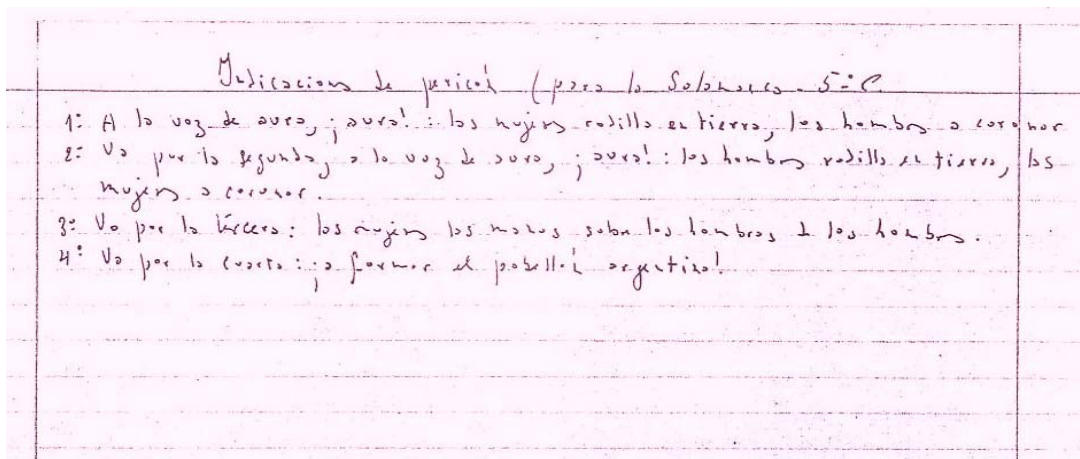 Indicaciones de pericón (para la Solanas. 5º C
1º A la voz de aura, ¡aura!: las mujeres rodilla en tierra, los hombres a coronar
2º Va por la segunda, a la voz de aura, ¡aura!: los hombres rodilla en tierra, las
mujeres a coronar.
3º Va por la tercera: las mujeres las manos sobre los hombros de los hombres.
4º Va por la cuarta: ¡a formar el pabellón argentino!